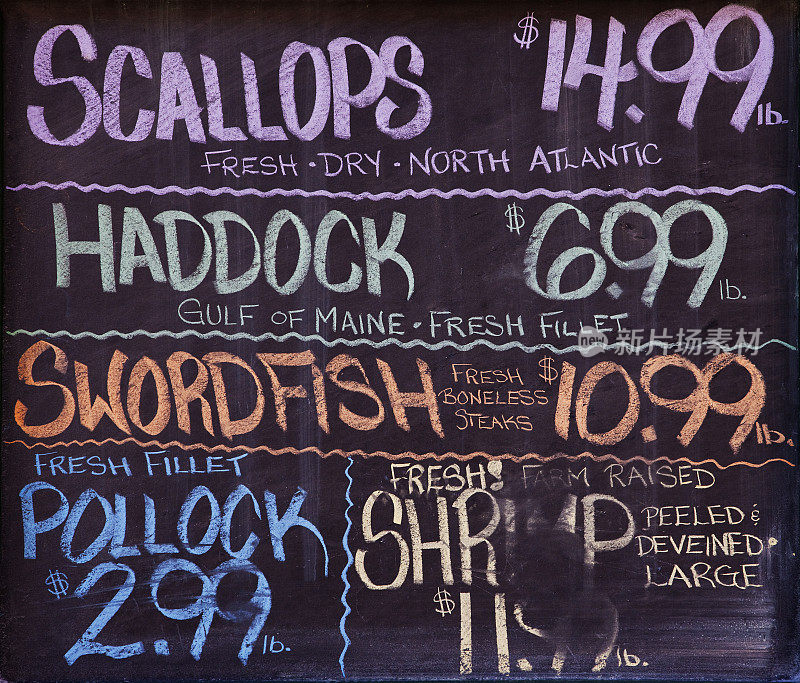 SCALLOPS $14.99 lb.
FRESH · DRY · NORTH ATLANTIC
HADDOCK $6.99 lb.
GULF OF MAINE · FRESH FILLET
新片场素材
SWORDFISH FRESH BONELESS STEAKS $10.99 lb.
FRESH FILLET
POLLOCK
$2.99 lb.
FRESH! FARM RAISED
SHRIMP
PEELED &
DEVEINED ·
LARGE
$11.99 lb.